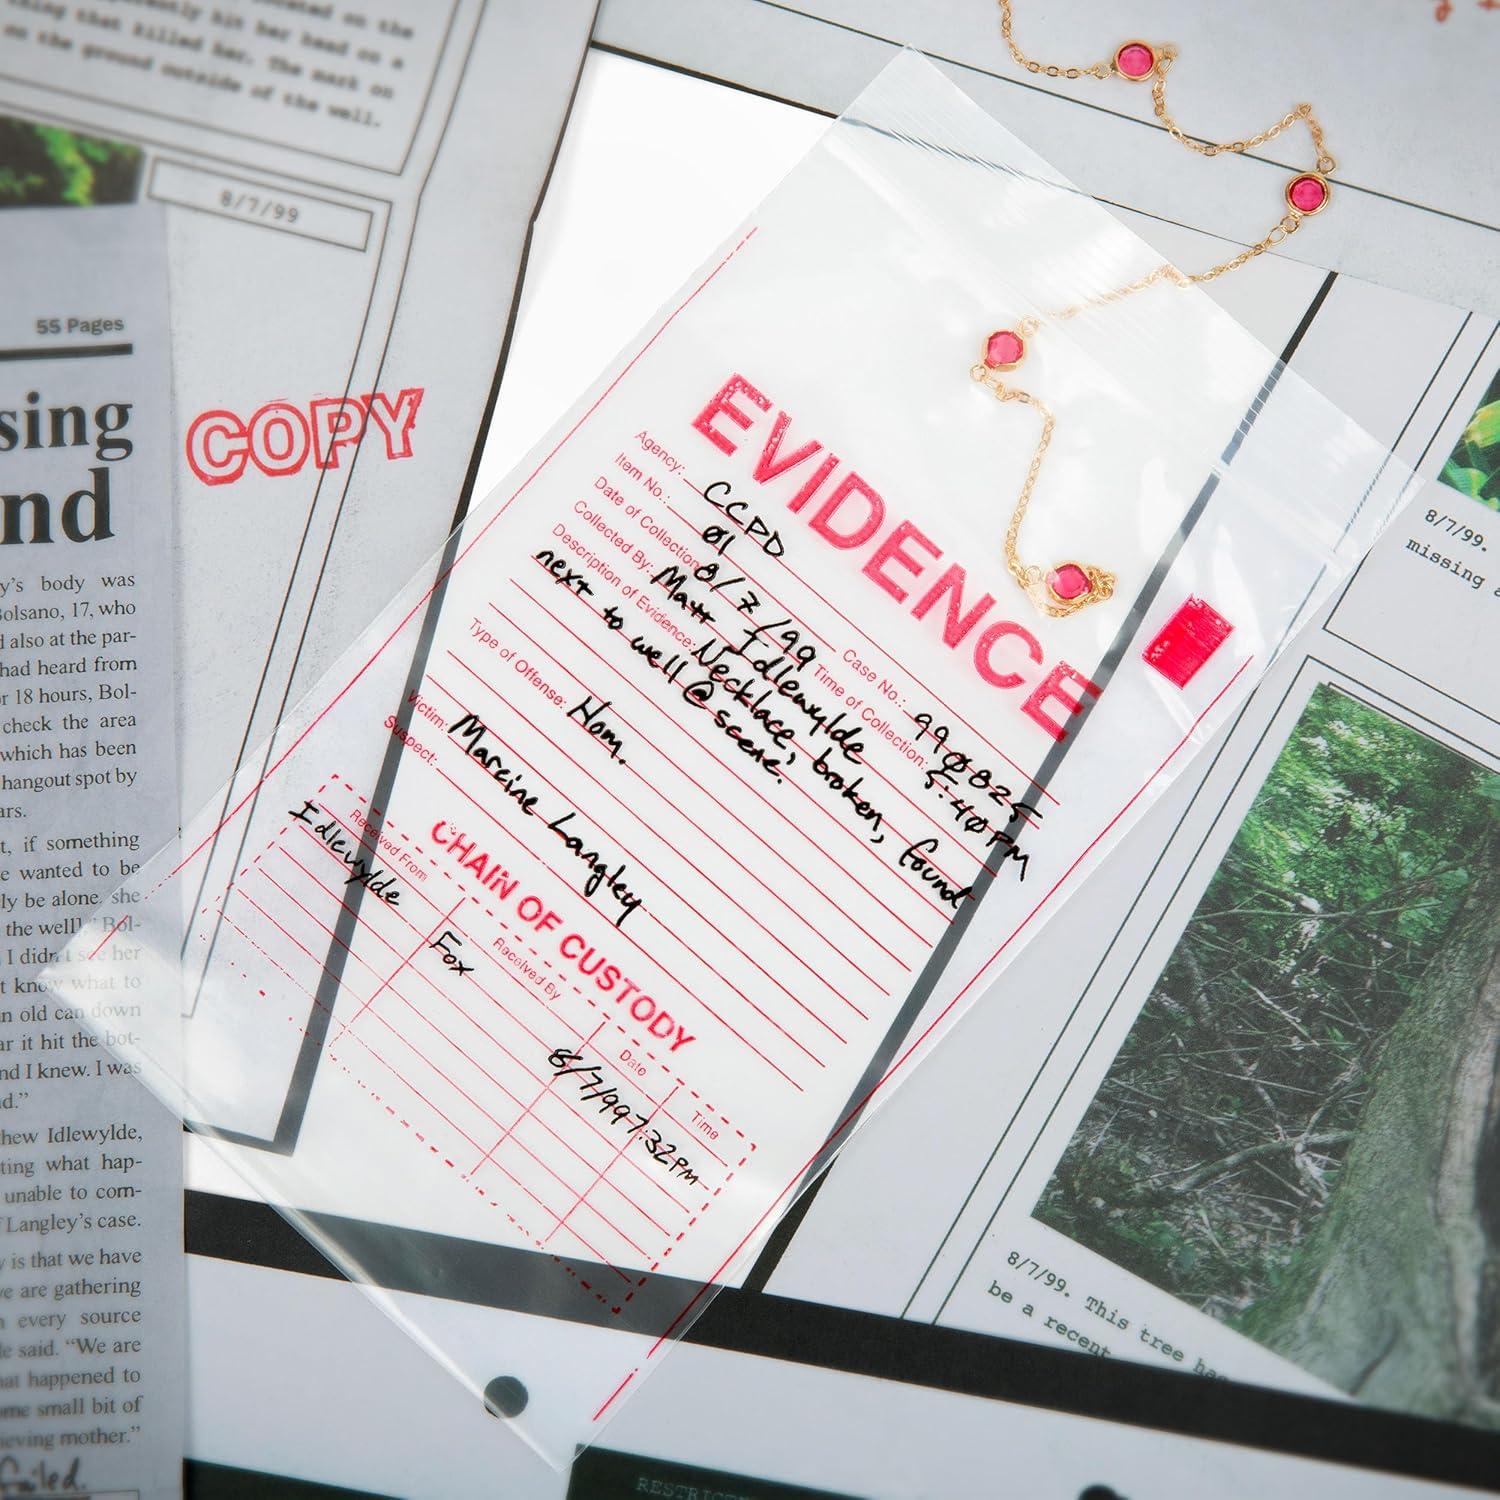 ocated on the
parently hit her head on a
thing that killed her. The mark on
on the ground outside of the well.
8/7/99
55 Pages
sing
nd
COPY
y's body was
Bolsano, 17, who
d also at the par-
had heard from
or 18 hours, Bol-
check the area
which has been
hangout spot by
ars.
t, if something
e wanted to be
ly be alone, she
the well!" Bol-
I didn't see her
t know what to
n old can down
ar it hit the bot-
nd I knew. I was
d."
hew Idlewylde,
ting what hap-
unable to com-
Langley's case.
y is that we have
e are gathering
every source
e said. "We are
at happened to
me small bit of
ieving mother."
failed.
EVIDENCE
Agency: CCPD
Item No.: 01 Case No.: 990825
Date of Collection: 8/7/99 Time of Collection: 5:40PM
Collected By: Matt Idlewylde
Description of Evidence: Necklace, broken, found
next to well @ scene.
Type of Offense: Hom.
Victim: Marcine Langley
Suspect:
CHAIN OF CUSTODY
Received From Received By Date Time
Idlewylde Fox 8/7/99 7:32PM
8/7/99.
missing a
8/7/99. This tree has
be a recent
RESTRICTE